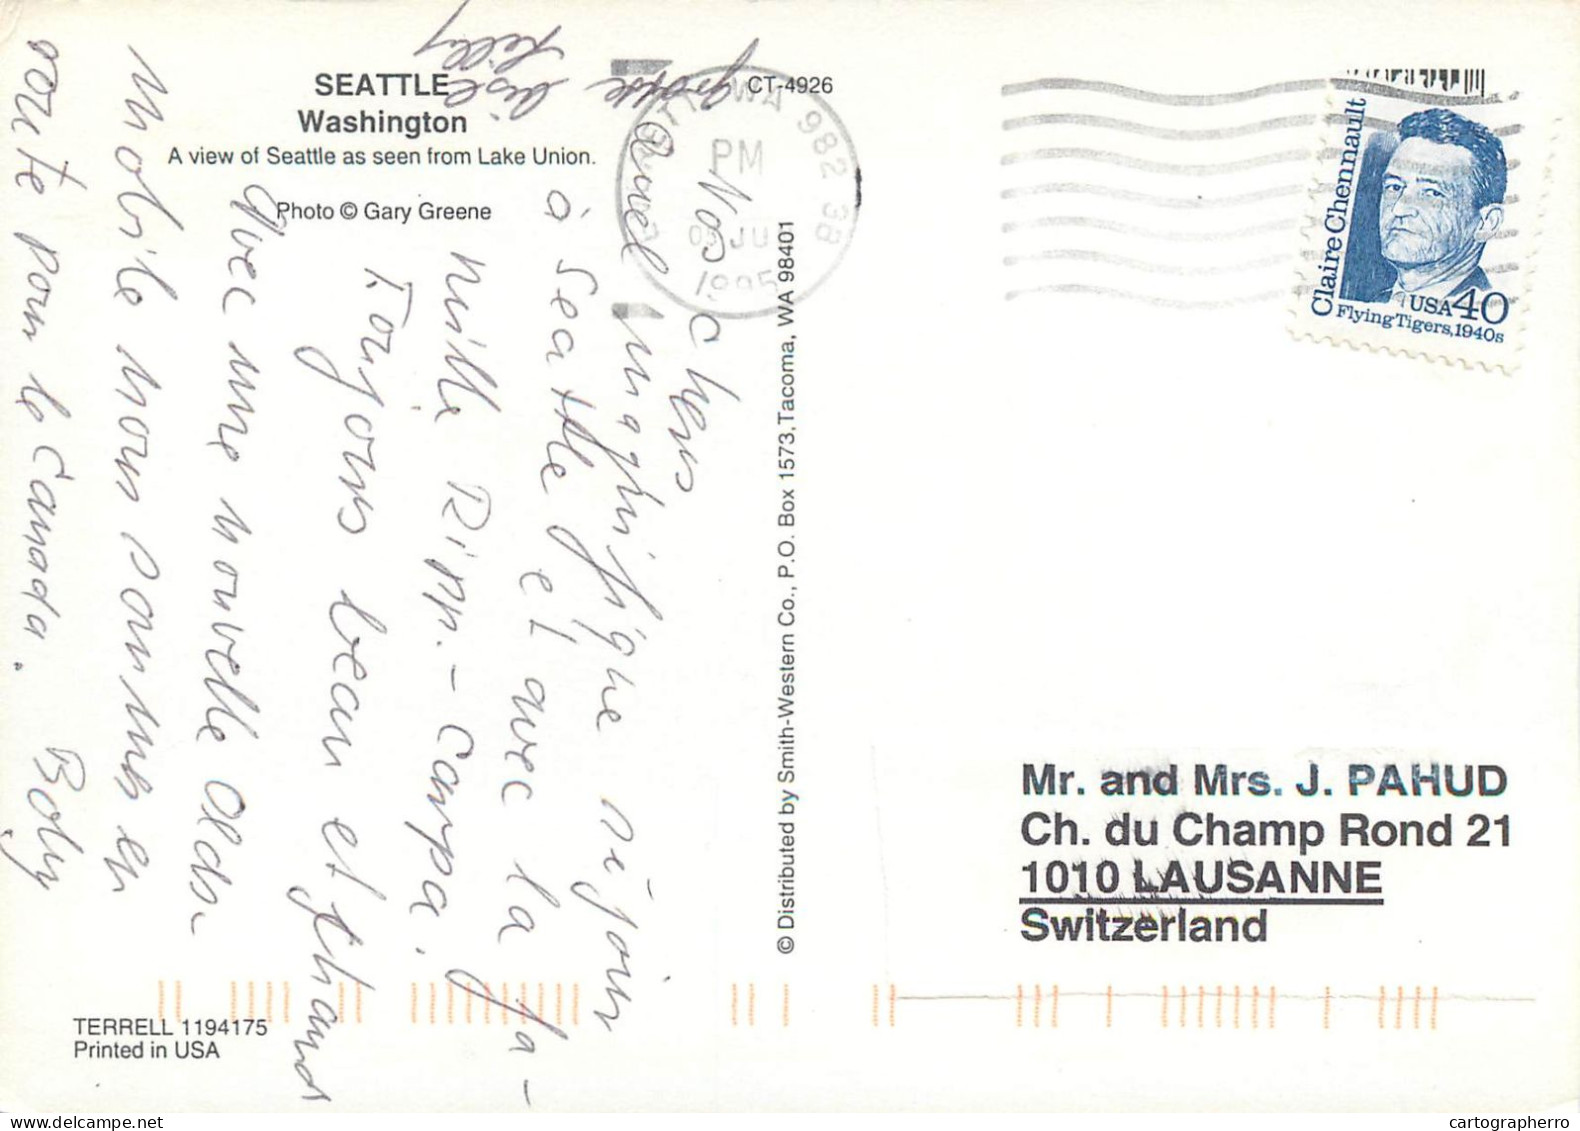 SEATTLE
Washington
A view of Seattle as seen from Lake Union.
Photo © Gary Greene
CT-4926
WA 982 3B
PM
JU
1995
Claire Chennault
USA 40
Flying Tigers, 1940s
Nos chers
magnifique séjour
à Seattle et avec la fa-
mille Ripp.-Carpa.
Toujours beau et chaud
Avec une nouvelle Olds-
mobile nous sommes en
route pour le Canada.
© Distributed by Smith-Western Co., P.O. Box 1573, Tacoma, WA 98401
Mr. and Mrs. J. PAHUD
Ch. du Champ Rond 21
1010 LAUSANNE
Switzerland
TERRELL 1194175
Printed in USA
cartographerro